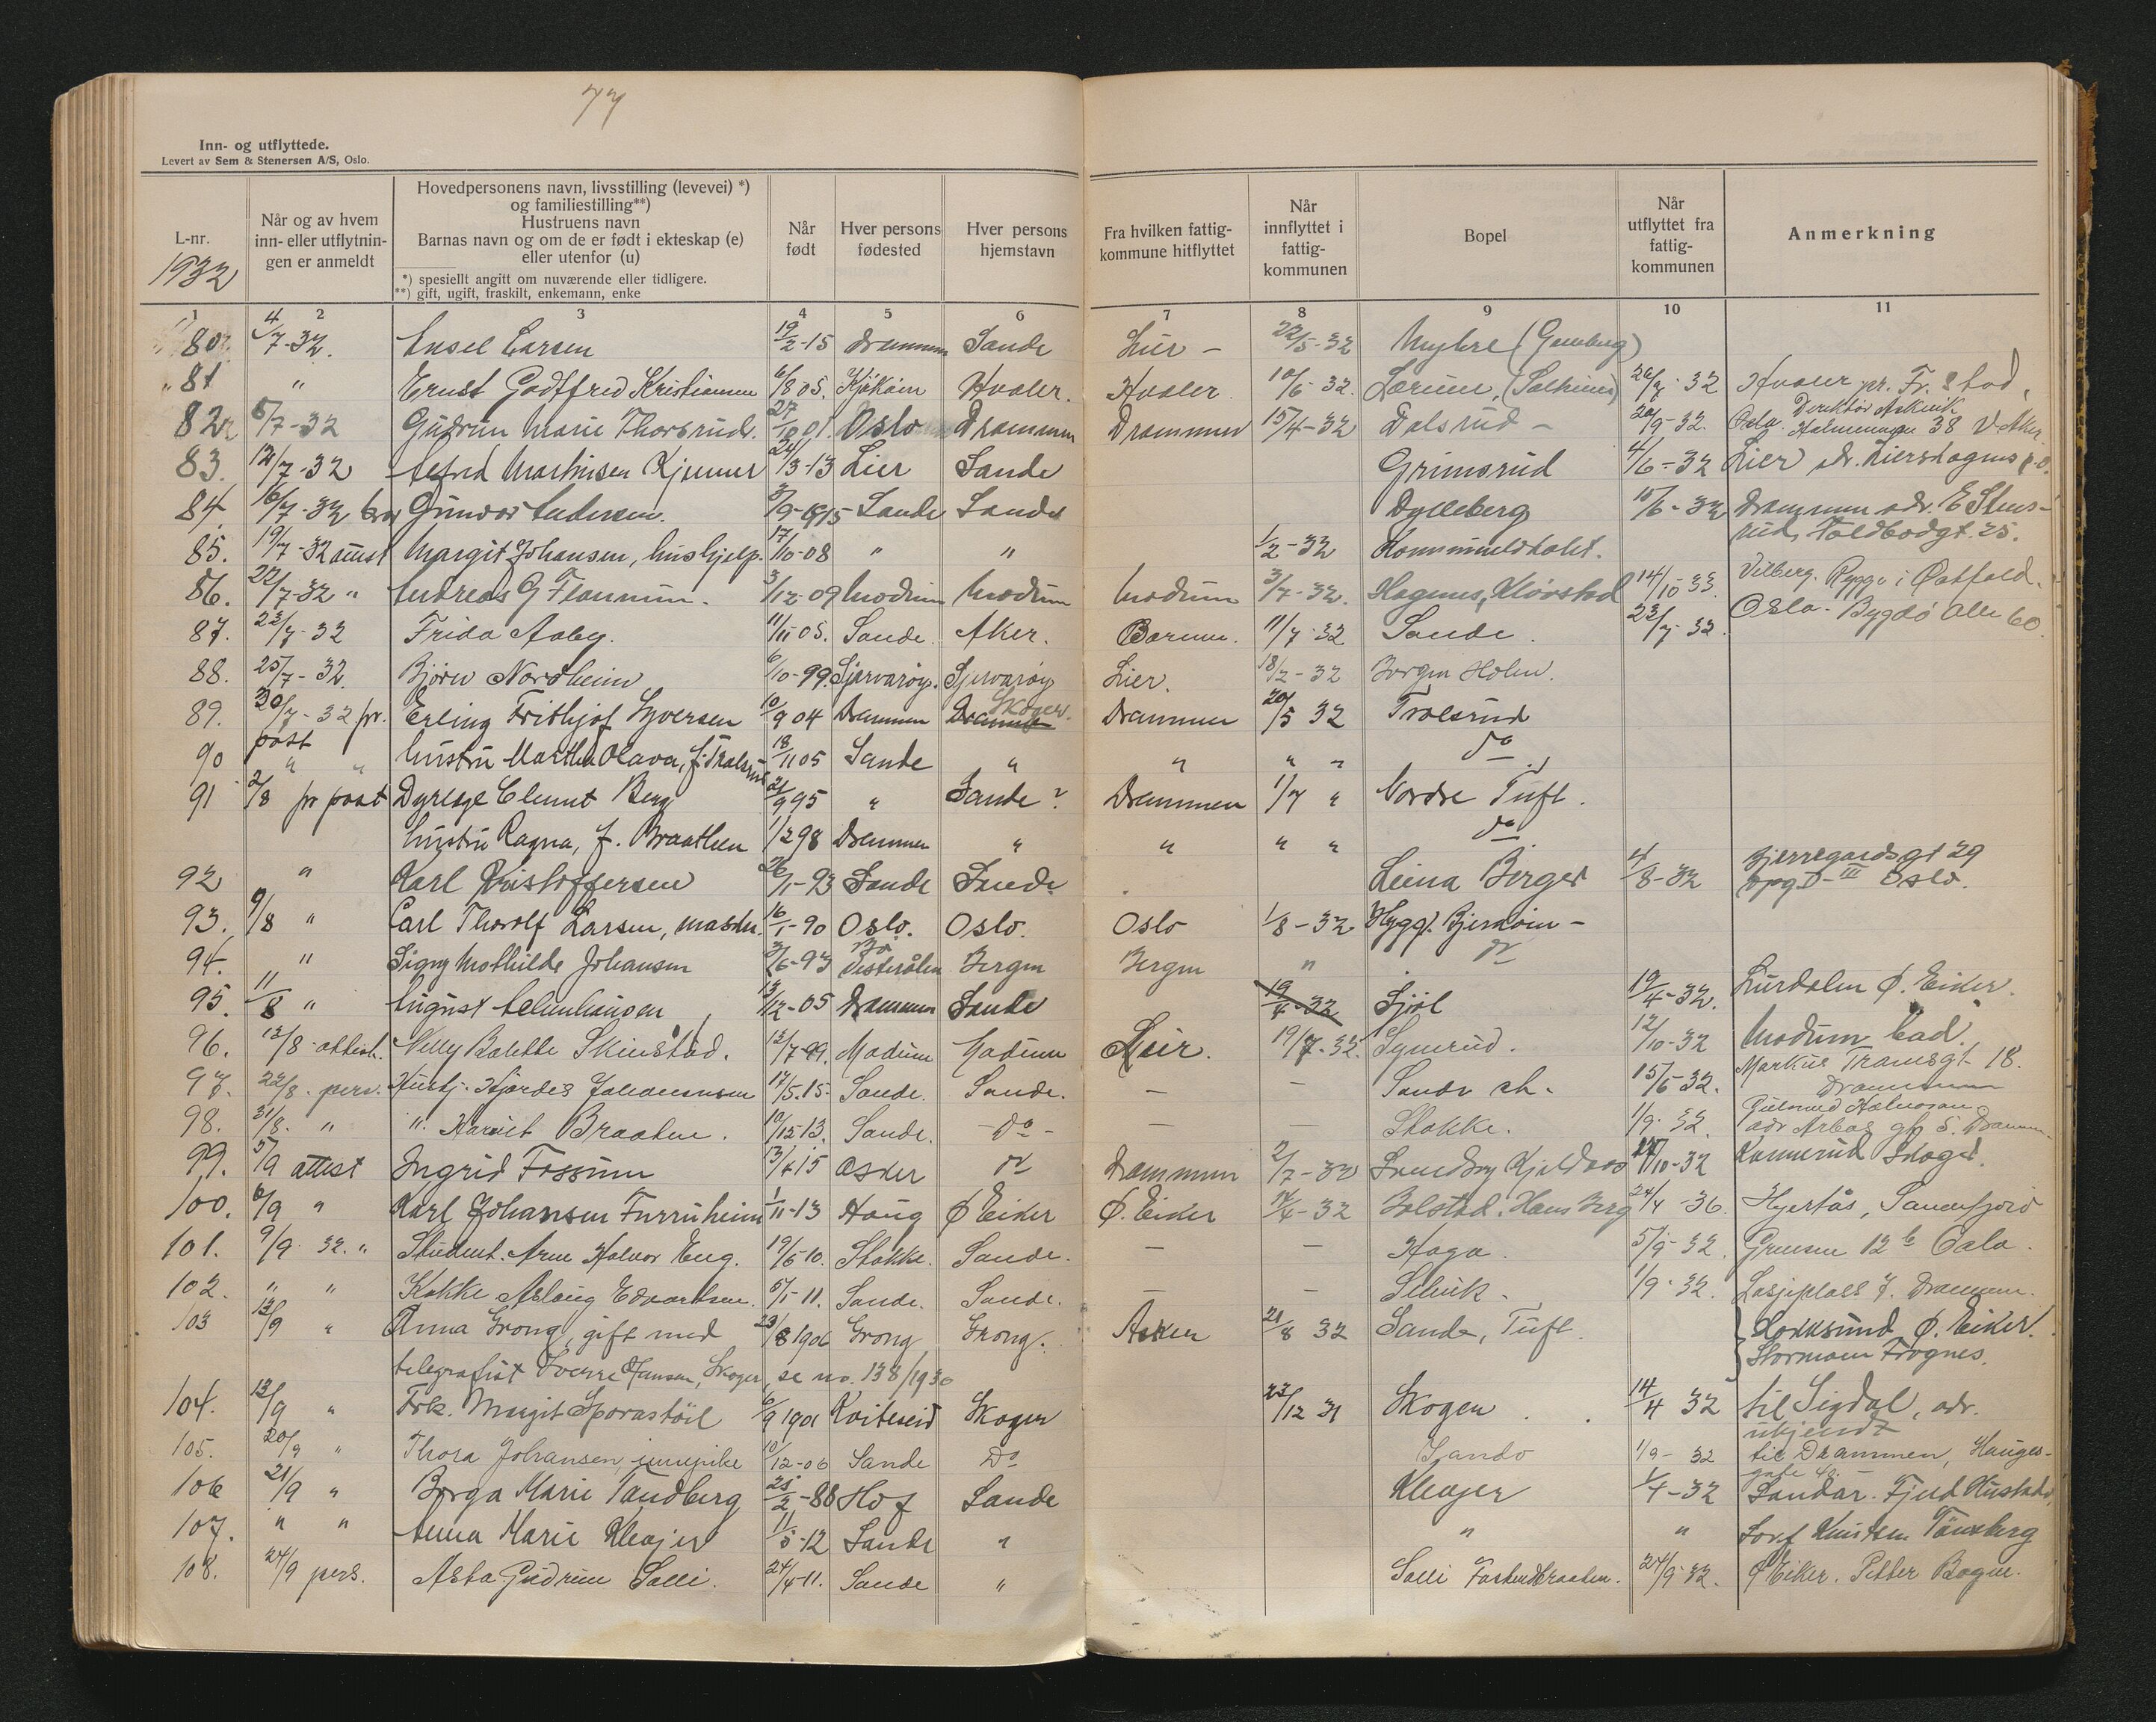 77
Inn- og utflyttede.
Levert av Sem & Stenersen A/S, Oslo.
L-nr.
1932
Når og av hvem
inn- eller utflytnin-
gen er anmeldt
Hovedpersonens navn, livsstilling (levevei) *)
og familiestilling**)
Hustruens navn
Barnas navn og om de er født i ekteskap (e)
eller utenfor (u)
*) spesiellt angitt om nuværende eller tidligere.
**) gift, ugift, fraskilt, enkemann, enke
Når
født
Hver persons
fødested
Hver persons
hjemstavn
Fra hvilken fattig-
kommune hitflyttet
Når
innflyttet i
fattig-
kommunen
Bopel
Når
utflyttet fra
fattig-
kommunen
Anmerkning
1 2 3 4 5 6 7 8 9 10 11
80 4/7-32. Larsen 19/2-15 Drammen Sande Lier - 22/5-32 Myhre
81 " Ernst Godtfred Kristiansen 6/8 05. Hvaler. Hvaler 10/6-32. 26/7-32 Hvaler pr. Fr.stad,
82 5/7-32 Gudrun Marie Thorsrud. 27/10 01. Oslo Drammen Drammen 15/4-32 Dalsrud - 20/9-32. Oslo. Direktør 38 V. Aker
83. 12/7-32 Martinsen Kjenner 24/3-13 Lier Sande Grimsrud 4/6-32 Lier adr. Lierskogens p.o.
84. 16/7-32 Gunvor Andersen. Sande Sande Dylleberg 10/6-32 Drammen adr. E Stens-
rud, Toldbodgt. 25.
85. 19/7-32 attest Margit Johansen, hushjelp. 17/10-08 " " 1/2-32 Kommunelokalet.
86. 22/7-32 " Andreas G 3/12-09 Modum Modum Modum 3/7-32. Kløvstad 14/10-33. Vilberg. Rygge i Østfold.
87. 22/7-32 Frida Aaby. 11/11 05. Sande. Aker. Bærum. 11/7-32 Sande. 23/7-32. Oslo - Bygdø Alle 60.
88. 25/7-32. Bjørn Nordheim 6/10-99. Lier. 18/2-32 Holm.
89. 30/7-32 pr. Erling Frithjof Syversen 10/9 04 Drammen Drammen Skoger. Drammen 20/5 32 Trolsrud
post
90 " " hustru Martha Olava, f. Trolsrud 18/11 05 Sande " " " " do
91 2/8 pr post Clemet Berg 21/9 95 " Sande? Drammen 1/7 " Nordre Tuft.
hustru Ragna, f. Braathen 1/2 98 Drammen " " " " do
92 " Karl Kristoffersen 26/1-93 Sande Sande Leina Berger 4/8-32 Bjerregårdsgt 29
opg. D-III Oslo.
93. 9/8 " Carl Thorolf Larsen, 16/1-90 Oslo. Oslo. Oslo 1/8-32 Hygg. -
94. " Signy Mathilde Johansen 3/6-93 Bø Vesterålen Bergen Bergen " do
95. 11/8 " August 13/12-05 Drammen Sande 19/4-32 19/4-32. Ø. Eiker.
96. 12/8 attest. Nelly Balette Skinstad. 12/7-99. Modum Modum Lier. 19/7-32. 12/10-32 Modum bad.
97. 22/8. pers. Hushj. Hjørdis Johannessen 17/5.15. Sande. Sande. - - Sande st. 15/6 32. Markus Tranesgt. 18.
Drammen
98. 31/8. " ". Harriet Braaten. 10/12-13. Sande. Do - - Stokke. 1/9-32. adr S. Drammen.
99. 5/9 attest Ingrid Fossum 3/4 15 Asker do Drammen 2/7-32 10-32 Konnerud Skoger.
100. 6/9 " Karl Johansen Furruheim 1/11-13 Haug Ø Eiker Ø. Eiker 14/4-32 Bolstad. Hans Berg 24/4-36. Hjertås, Sandefjord
101. 9/9 32. " Student. Arne Halvor Eng. 19/5 10. Stokke. Sande. - - Haga. 5/9-32. Grensen 12 b Oslo.
102. " " Kokke Aslaug Edvardsen. 5/1-11. Sande. Sande. - - Selvik. 1/9-32. 7. Drammen.
103 13/9 " Anna Grong, gift med 23/8 1906 Grong Grong. Asker 21/8 32 Sande, Tuft. Hokksund Ø. Eiker.
telegrafist Sverre Hansen, Skoger, se no. 138/1930 Frognes.
104. 13/9 " Frk. Margit Sporastøil 6/9 1901 Kviteseid Skoger 23/12 31 Skogen. 14/4 32 til Sigdal, adr.
ukjendt
105. 20/9 " Thora Johansen, 10/12-06 Sande Do Sando 1/9-32 til Drammen, Hauges-
gate
106 21/9 " Borga Marie Tandberg 25/2-88 Hof Sande Kleajer 1/4-32 Sandar.
107. " " Anna Marie Kleajer 11/5-12 Sande " " " Knutsen Tønsberg
108. 24/9 pers. Asta Gudrun Solli. 24/4-11. Sande " Solli 24/9-32. Ø Eiker. Petter Bogen.